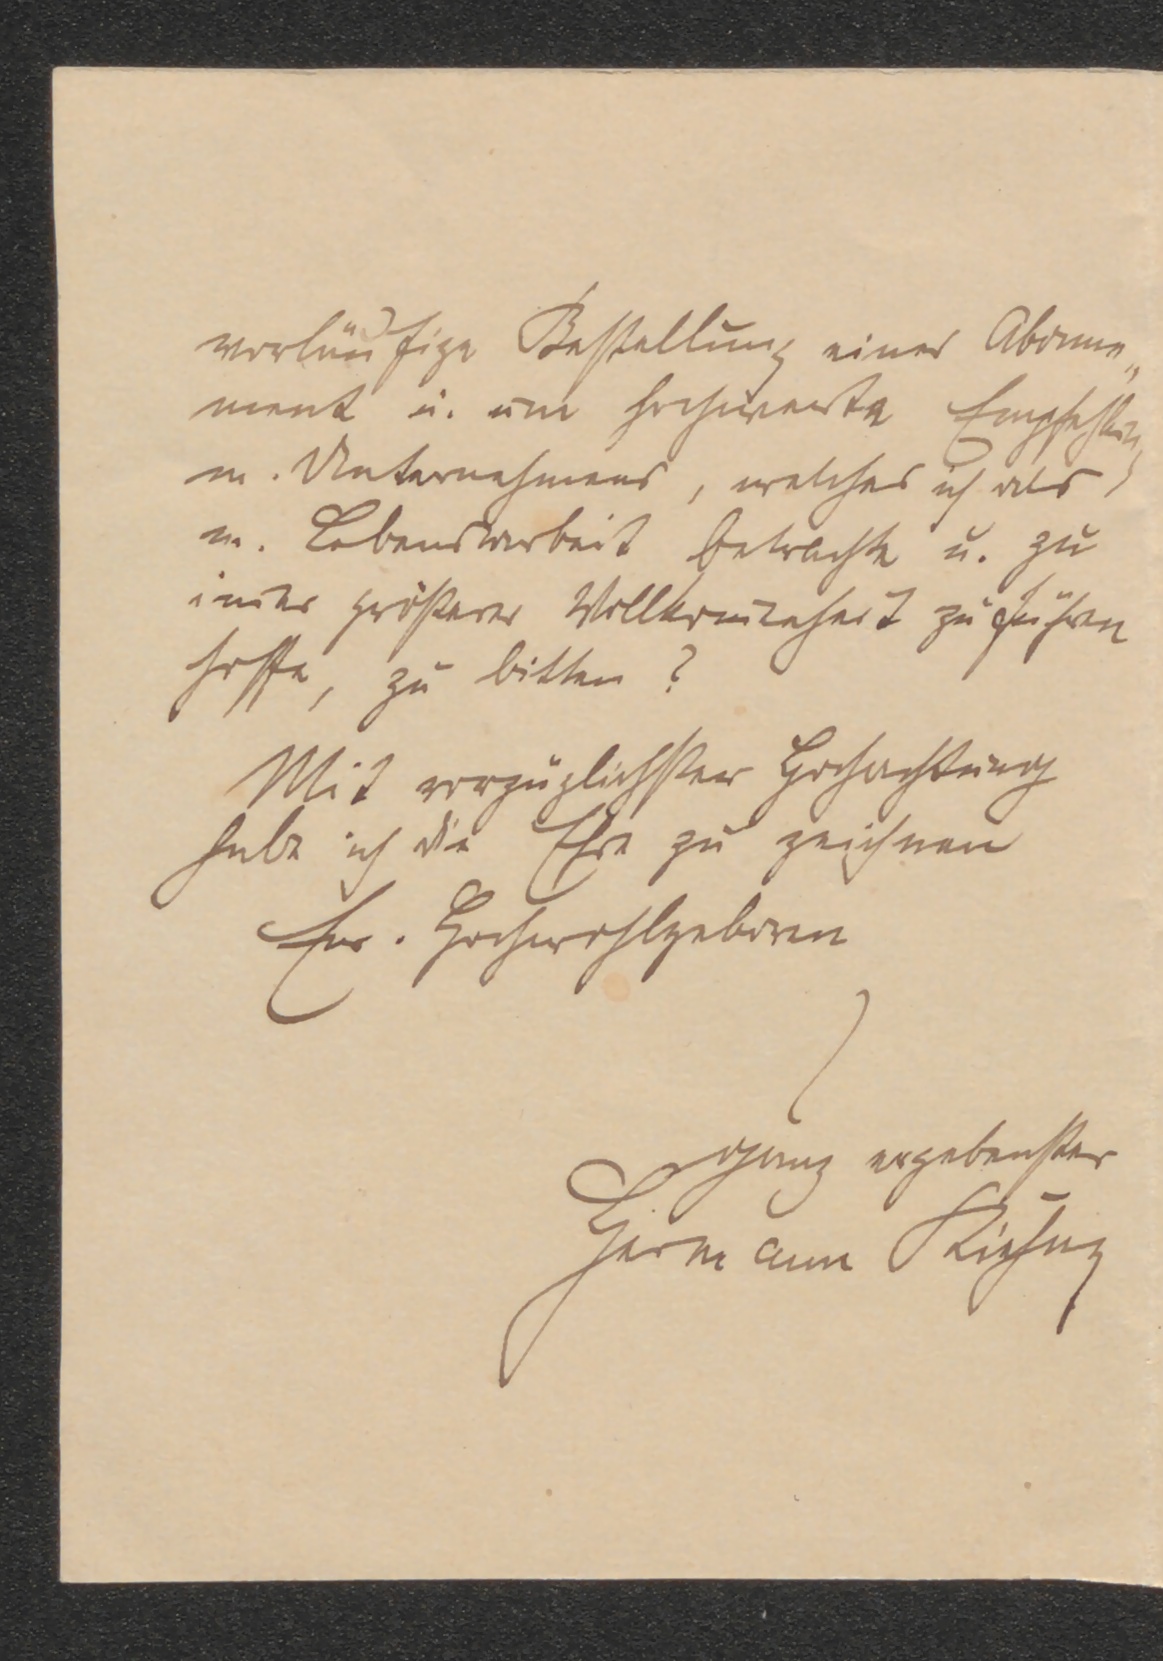 vorläufige Bestellung eines Abonne„
ment u. um hochwerte Empfehlung
m. Unternehmens, welches ich als
m. Lebensarbeit betrachte u. zu
im̅er größerer Vollkom̅enheit zu führen
hoffe, zu bitten?
Mit vorzüglichster Hochachtung
habe ich die Ehre zu zeichnen
Ew. Hochwohlgeboren
ganz ergebenster
Hermann